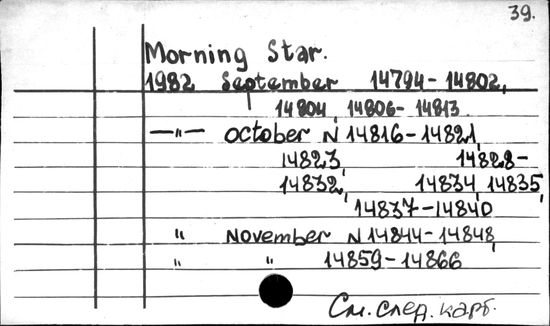 39.
Morning Star.
1982 September 14794-14802,
14804, 14806-14813.
—"— October N 14816-14821,
14823, 14828-
14832, 14834, 14835,
14837-14840
" November N 14844-14848,
" " 14859-14866
См. след. карт.